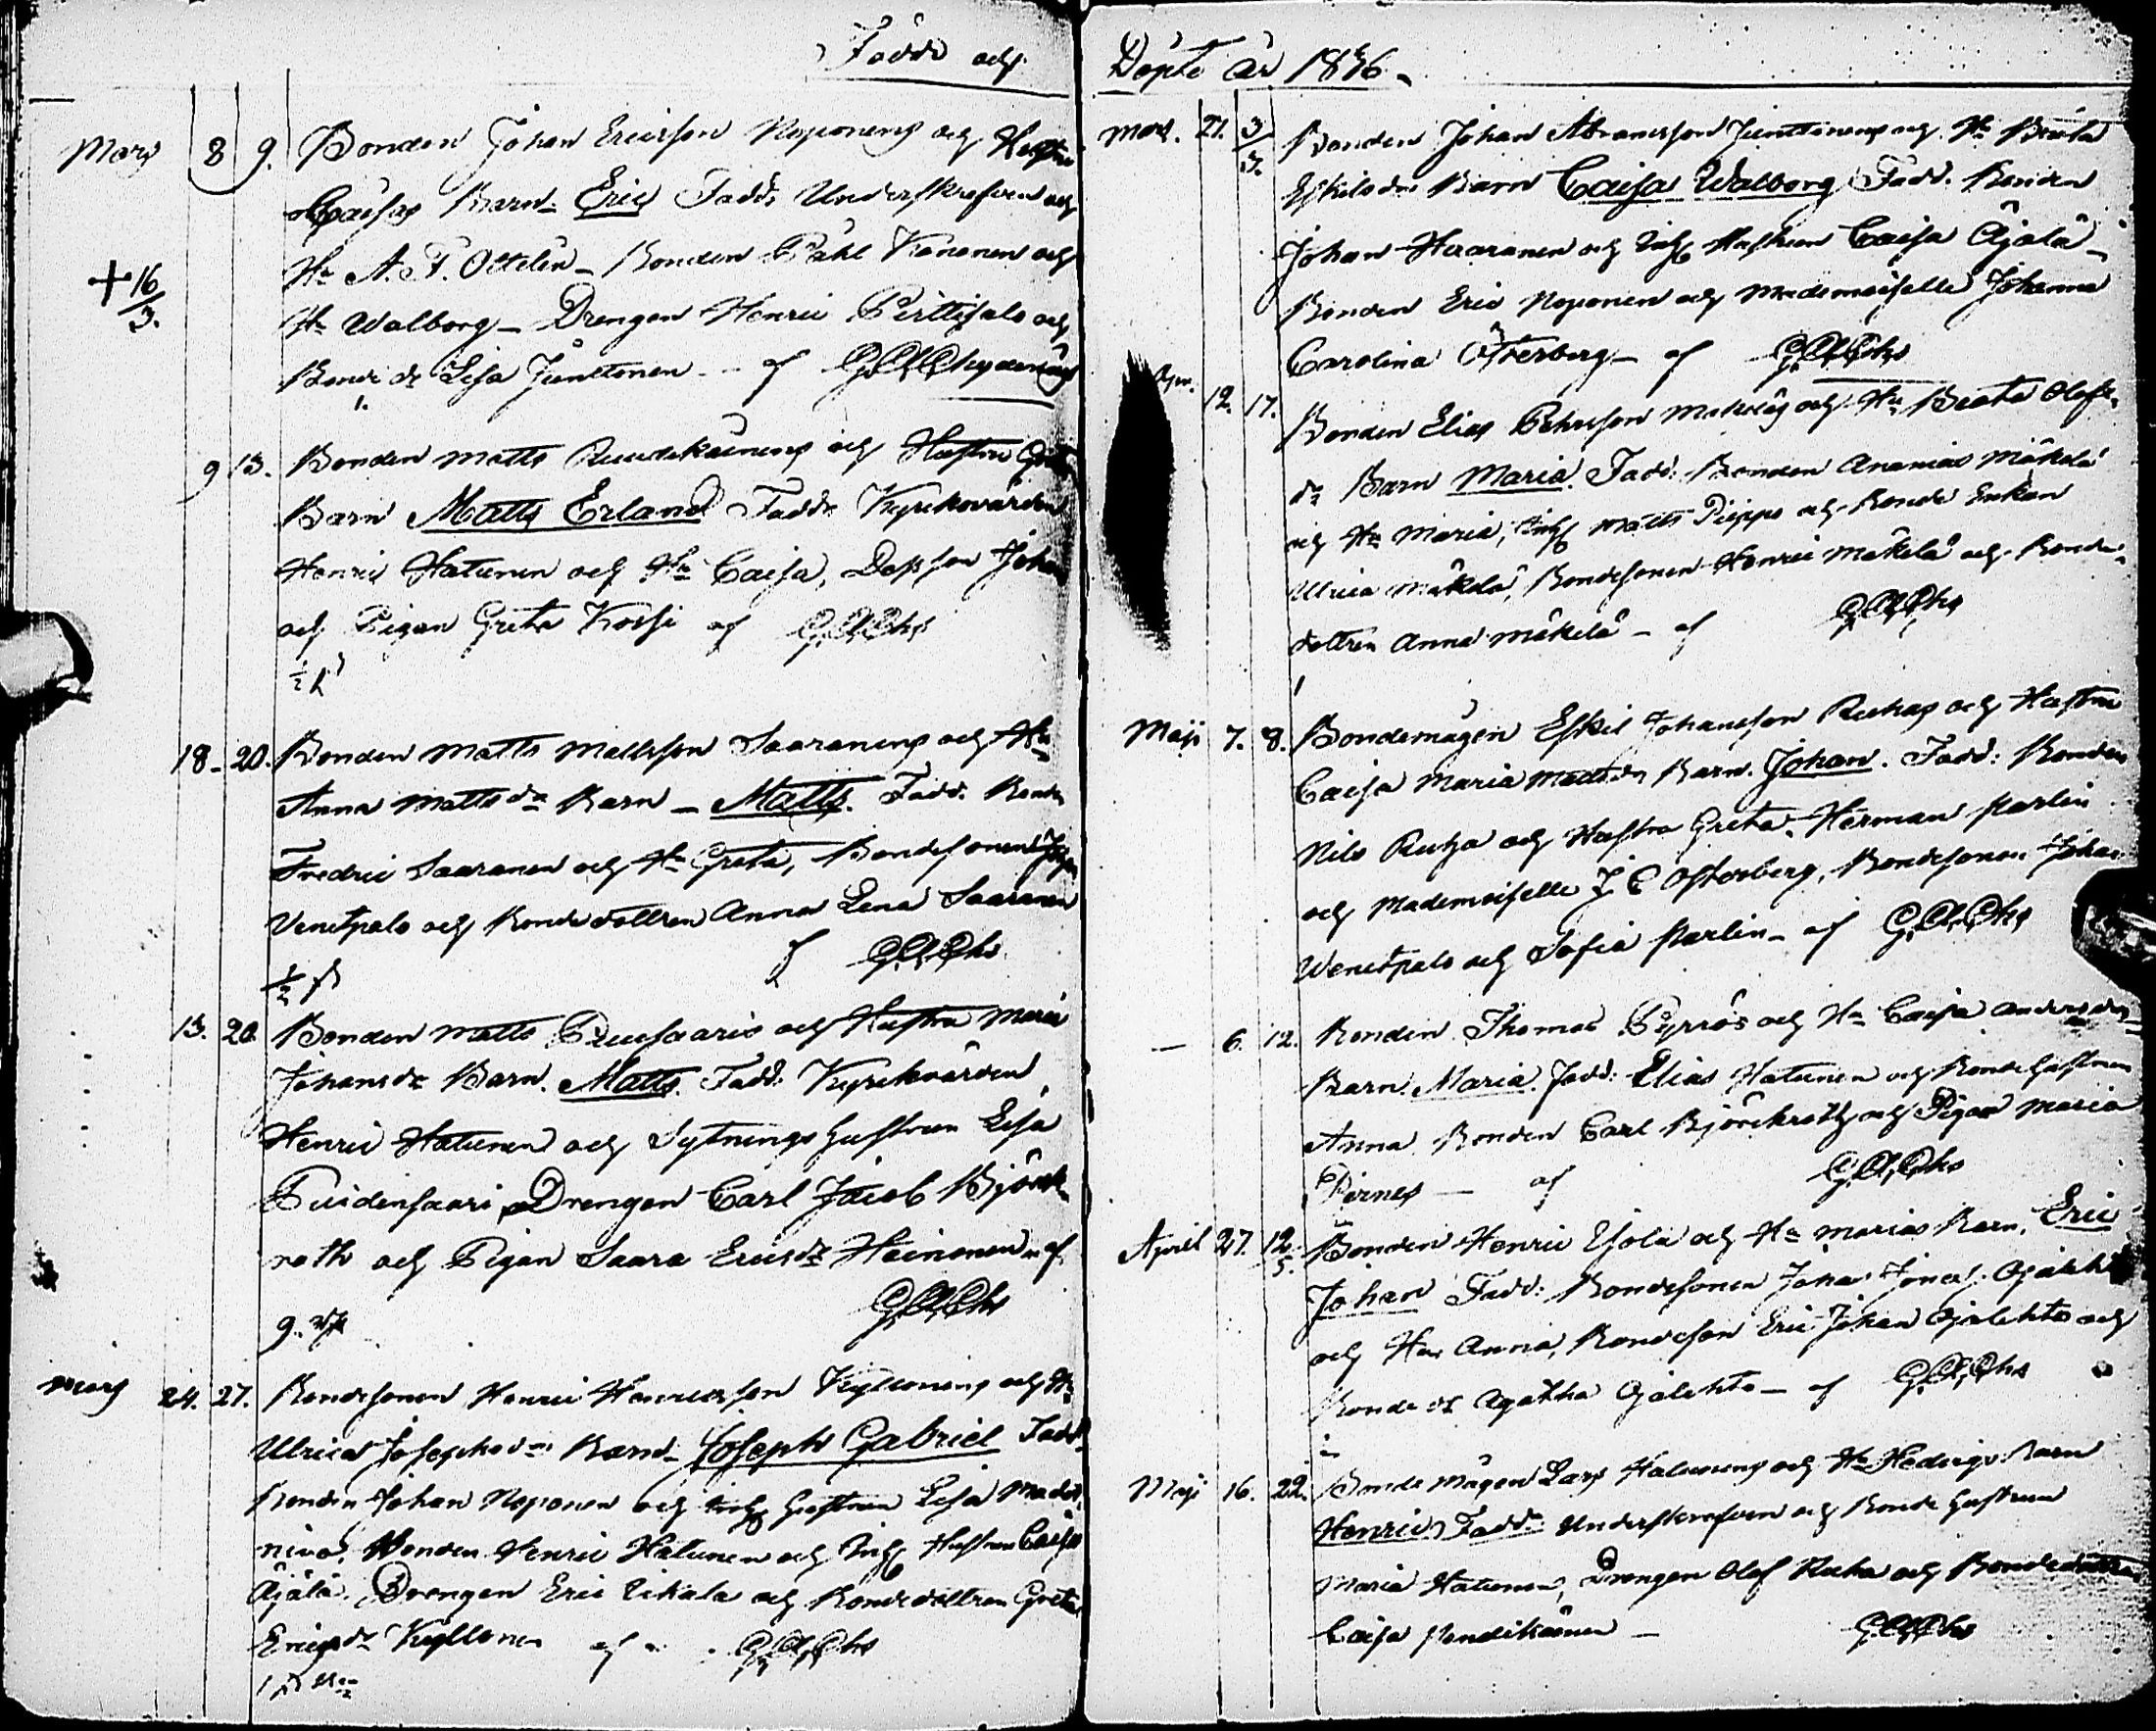 Födde och
Mars 8 9. Bonden Johan Ericsson Noponens och Hustru
Caisas Barn Eric Fadd. Underskrefven och
Hu A. F. Ottelin _ Bonden Påhl Kononen och
Hu Walborg _ Drengen Henric Pirttisalo och
+ 16/3.
Bonde dr Lisa Junttonen _ af G.A.Chydenius
1.
9 13. Bonden Matts och Hustru Greta
Barn Matts Erland Fadd. Kyrkovärden
Henric Hatunen och Hu Caisa, Johan
och Pigan Greta Kossi af G.A.Chs
1/2
18. 20. Bonden Matts Mattsson Saaranens och Hu
Anna Matts dr Barn _ Matts. Fadd. Bonden
Fredric Saaranen och Hu Greta, Bondesonen
Venetpalo och Bondedottren Anna Lena Saaranen
af G.A.Chs
1/2
13. 20. Bonden Matts och Hustru Maria
Johansdr Barn. Matts. Fadd: Kyrkvärden
Henric Hatunen och Sytnings hustrun Lisa
Drengen Carl Jacob Björk-
roth och Pigan Saara Ericsdr Heinonen af
G.A.Chs
9.
Mars 24. 27. Bondesonen Henric Henricsson Kyllönens och Hu
Ulrica Josephsdr Barn. Joseph Gabriel Fadd.
Bonden Johan Noponen och Inhs hustrun Lisa Made-
niva, Bonden Henric Hatunen och Inhs Hustrun Caisa
Äjälä. Drengen Eric och Bondedottren Greta
Ericsdr Kyllönen af G.A.Chs
Döpte år 1836.
Mars. 21. 3/5. Bonden Johan Abramsson Junttonens och Hu Beata
Eskilsdr Barn Caisa Walborg Fadd. Bonden
Johan Haaranen och Inhs Hustrun Caisa Äjälä _
Bonden Eric Noponen och Mademoiselle Johanna
Carolina Österberg _ af G.A.Chs
Apr. 12. 17. Bonden Elias Pehrsson och Hu Beata Olofs-
dr Barn Maria. Fadd: Bonden Ananias Mäkelä
och Hu Maria, Inhs Matts Pieppo och Bonde Enkan
Ulrica Mäkelä, Bondesonen Henric Mäkelä och Bonde-
dottren Anna Mäkelä _ af G.A.Chs
1
Maji 7. 8. Bondemågen Eskil Johansson Ruhas och Hustru
Caisa Maria Mattsdr Barn. Johan. Fadd: Bonden
Nils Ruha och Hustru Greta. Herman Parlin
och Mademoiselle J C Österberg, Bondesonen Johan
Wenetpalo och Sofia Parlin _ af G.A.Chs
_ 6. 12. Bonden Thomas Pyrrös och Hu Caisa Andersdrs
Barn. Maria. Fadd: Elias Hatunen och Bondehustrun
Anna Bonden Carl Björkroth och Pigan Maria
Pirnes _ af G.A.Chs
April 27. 12/5. Bonden Henric Esola och Hu Marias Barn. Eric
Johan Fadd: Bondesonen Johan
och Hu Anna, Bondeson Eric Johan Ojalehto och
Bonde dr Agatha Ojalehto _ af G.A.Chs
Maji 16. 22. Bonde Mågen Lars och Hu Hedvigs Barn
Henric. Fadd. Underskrefven och Bonde hustrun
Maria Hatunen, Drengen Olof Ruha och Bondedottren
Caisa _ G.A.Chs